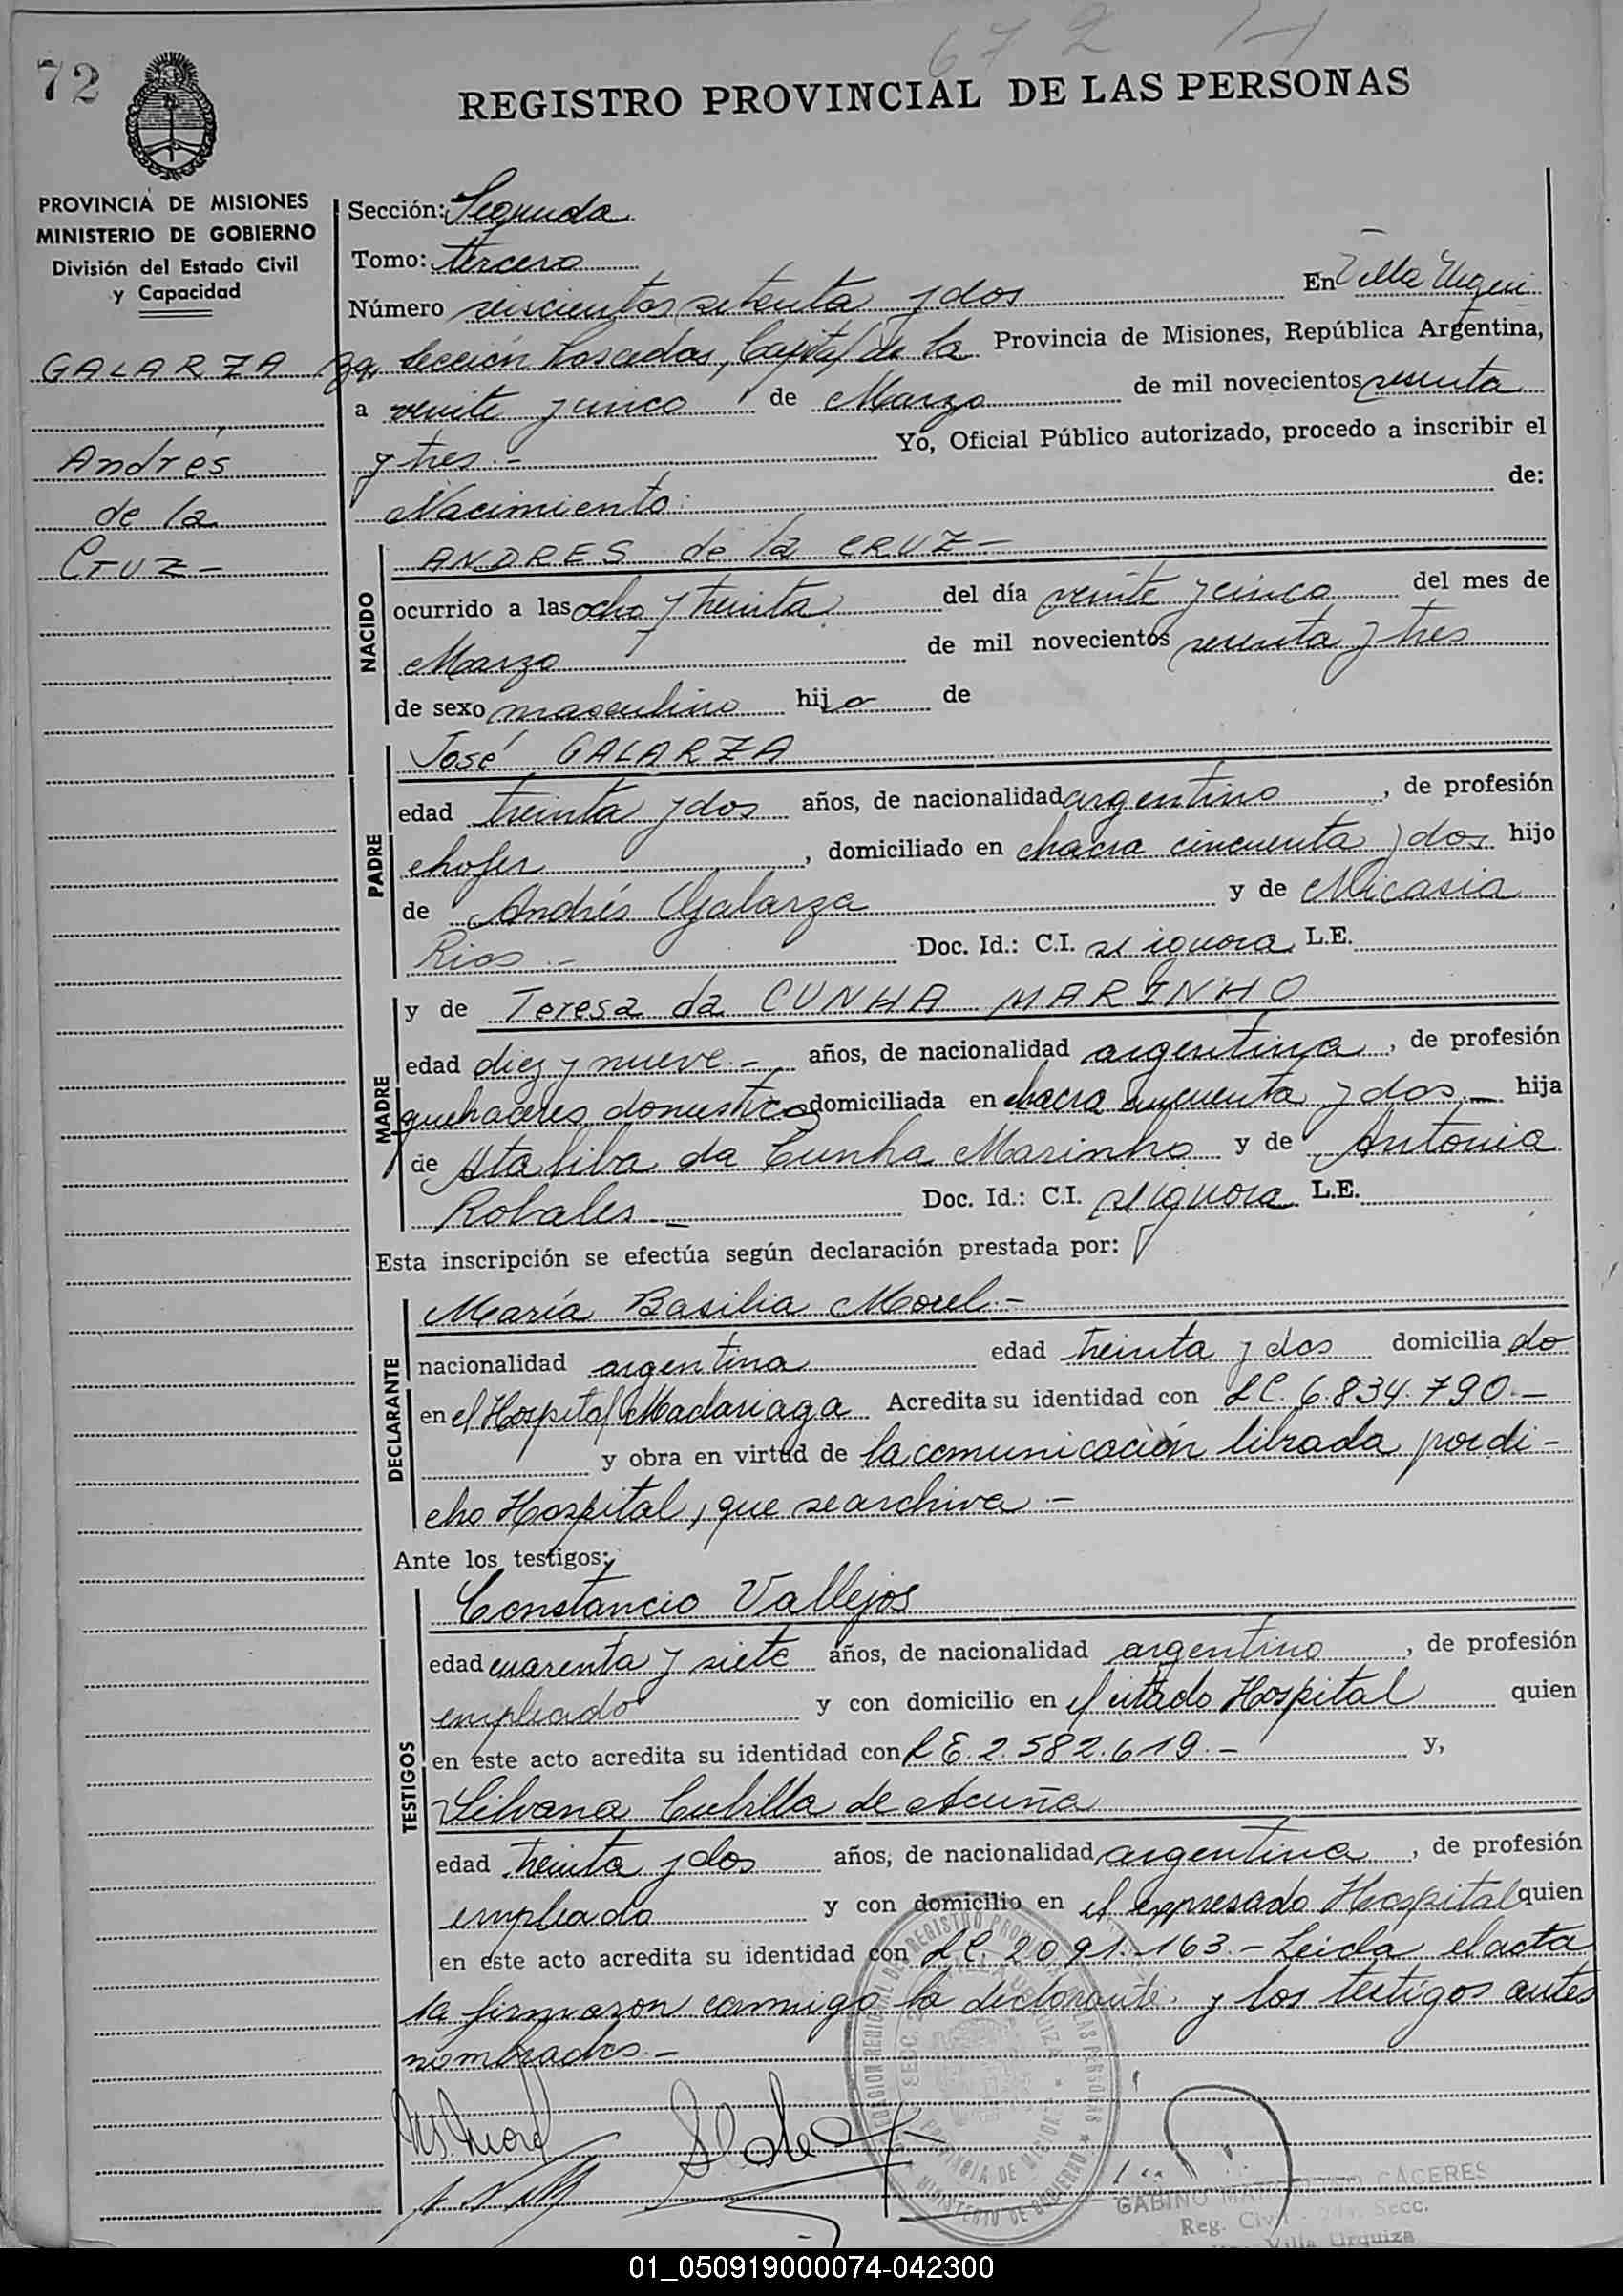 672
72
REGISTRO PROVINCIAL DE LAS PERSONAS
PROVINCIA DE MISIONES
MINISTERIO DE GOBIERNO
División del Estado Civil
y Capacidad
GALARZA
Andrés
de la
Cruz -
Sección: Segunda
Tomo: tercero
Número seiscientos setenta y dos En Villa Urqui
za, Sección Posadas, Capital de la Provincia de Misiones, República Argentina,
a veinte y cinco de Marzo de mil novecientos sesenta
y tres.- Yo, Oficial Público autorizado, procedo a inscribir el
Nacimiento: de:
NACIDO
ANDRES de la CRUZ -
ocurrido a las ocho y treinta del día veinte y cinco del mes de
Marzo de mil novecientos sesenta y tres
de sexo masculino hijo de
PADRE
José GALARZA
edad treinta y dos años, de nacionalidad argentino, de profesión
chofer, domiciliado en chacra cincuenta y dos hijo
de Andrés Galarza y de Nicasia
Rios.- Doc. Id.: C.I. se ignora L.E.
MADRE
y de Teresa da CUNHA MARINHO
edad diez y nueve.- años, de nacionalidad argentina, de profesión
quehaceres domesticos domiciliada en chacra cincuenta y dos.- hija
de Ataliba da Cunha Marinho y de Antonia
Robales.- Doc. Id.: C.I. se ignora L.E.
Esta inscripción se efectúa según declaración prestada por:
DECLARANTE
María Basilia Morel.-
nacionalidad argentina edad treinta y dos domiciliado
en el Hospital Madariaga Acredita su identidad con LC. 6.834.790.-
y obra en virtud de la comunicación librada por di-
cho Hospital, que se archiva.-
Ante los testigos:
TESTIGOS
Constancio Vallejos
edad cuarenta y siete años, de nacionalidad argentino, de profesión
empleado y con domicilio en el citado Hospital quien
en este acto acredita su identidad con L E. 2.582.619.- y,
Silvana Cubilla de Acuña
edad treinta y dos años, de nacionalidad argentina, de profesión
empleada y con domicilio en el expresado Hospital quien
en este acto acredita su identidad con LC. 2091.163.- Leida el acta
la firmaron conmigo la declarante y los testigos antes
nombrados.-
M.B. Morel
GABINO CACERES
Reg. Civil - 2da. Secc.
Villa Urquiza
01_050919000074-042300